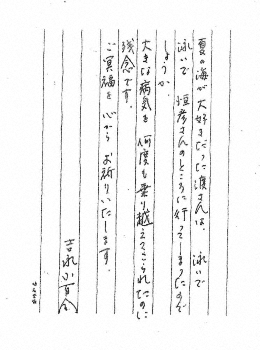 夏の海が大好きだった渡さんは、泳いで
泳いで 恒彦さんのところに行ってしまったので
しょうか。
大きな病気を何度も乗り越えてこられたのに
残念です。
ご冥福を心からお祈りいたします。
吉永小百合